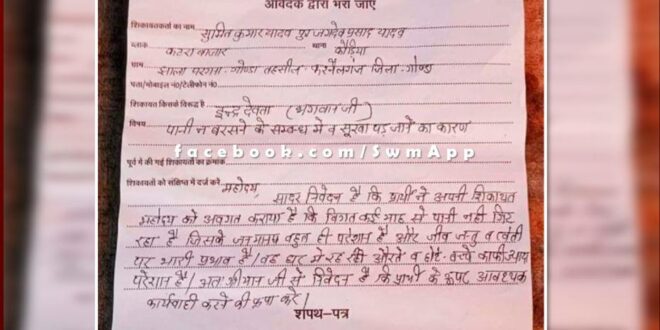 आवेदक द्वारा भरा जाए
शिकायतकर्ता का नाम सुमित कुमार यादव पुत्र जगदेव प्रसाद यादव
ब्लाक कटरा बाजार थाना कौडिया
ग्राम झाला परगना-गोण्डा तहसील-करनैलगंज जिला-गोण्डा
पता/मोबाइल न०/टेलीफोन न०
शिकायत किसके विरूद्ध है इन्द्र देवता (भगवान जी)
विषय पानी न बरसने के सम्बन्ध में व सूखा पड़ जाने का कारण
facebook.com/SwmApp
पूर्व मे की गई शिकायतों का क्रमांक
शिकायतों को संक्षिप्त में दर्ज करें महोदय,
सादर निवेदन है कि प्रार्थी ने अपनी शिकायत
महोदय को अवगत कराया है कि विगत कई माह से पानी नहीं गिर
रहा है जिसके जनमानष बहुत ही परेशान है और जीव जन्तु व खेती
पर भारी प्रभाव है/ वह घर में रह रही औरते व छोटे बच्चे काफी
परेशान हैं/ अतः श्रीमान जी से निवेदन है कि प्रार्थी के ऊपर आवश्यक
कार्यवाही करने की कृपा करें/
शपथ-पत्र